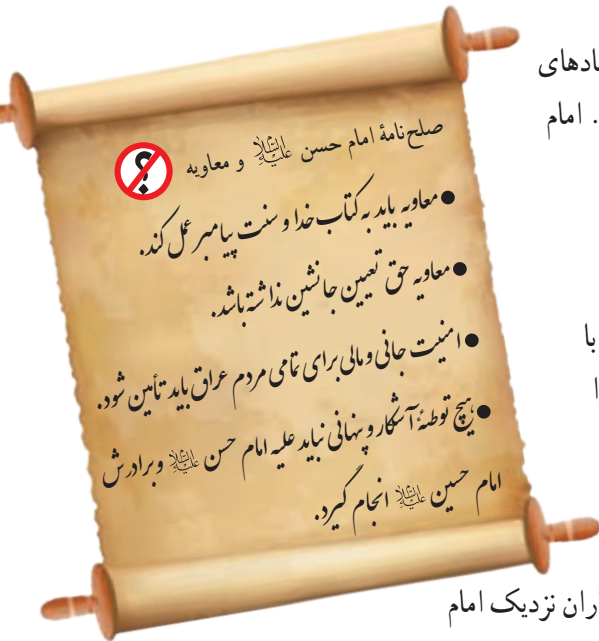 ادهای
. امام
صلح‌نامهٔ امام حسن علیه‌السلام و معاویه ؟
● معاویه باید به کتاب خدا و سنت پیامبر عمل کند.
● معاویه حق تعیین جانشین نداشته باشد.
با
● امنیت جانی و مالی برای تمامی مردم عراق باید تأمین شود.
ا
● هیچ توطئهٔ آشکار و پنهانی نباید علیه امام حسن علیه‌السلام و برادرش
امام حسین علیه‌السلام انجام گیرد.
اران نزدیک امام